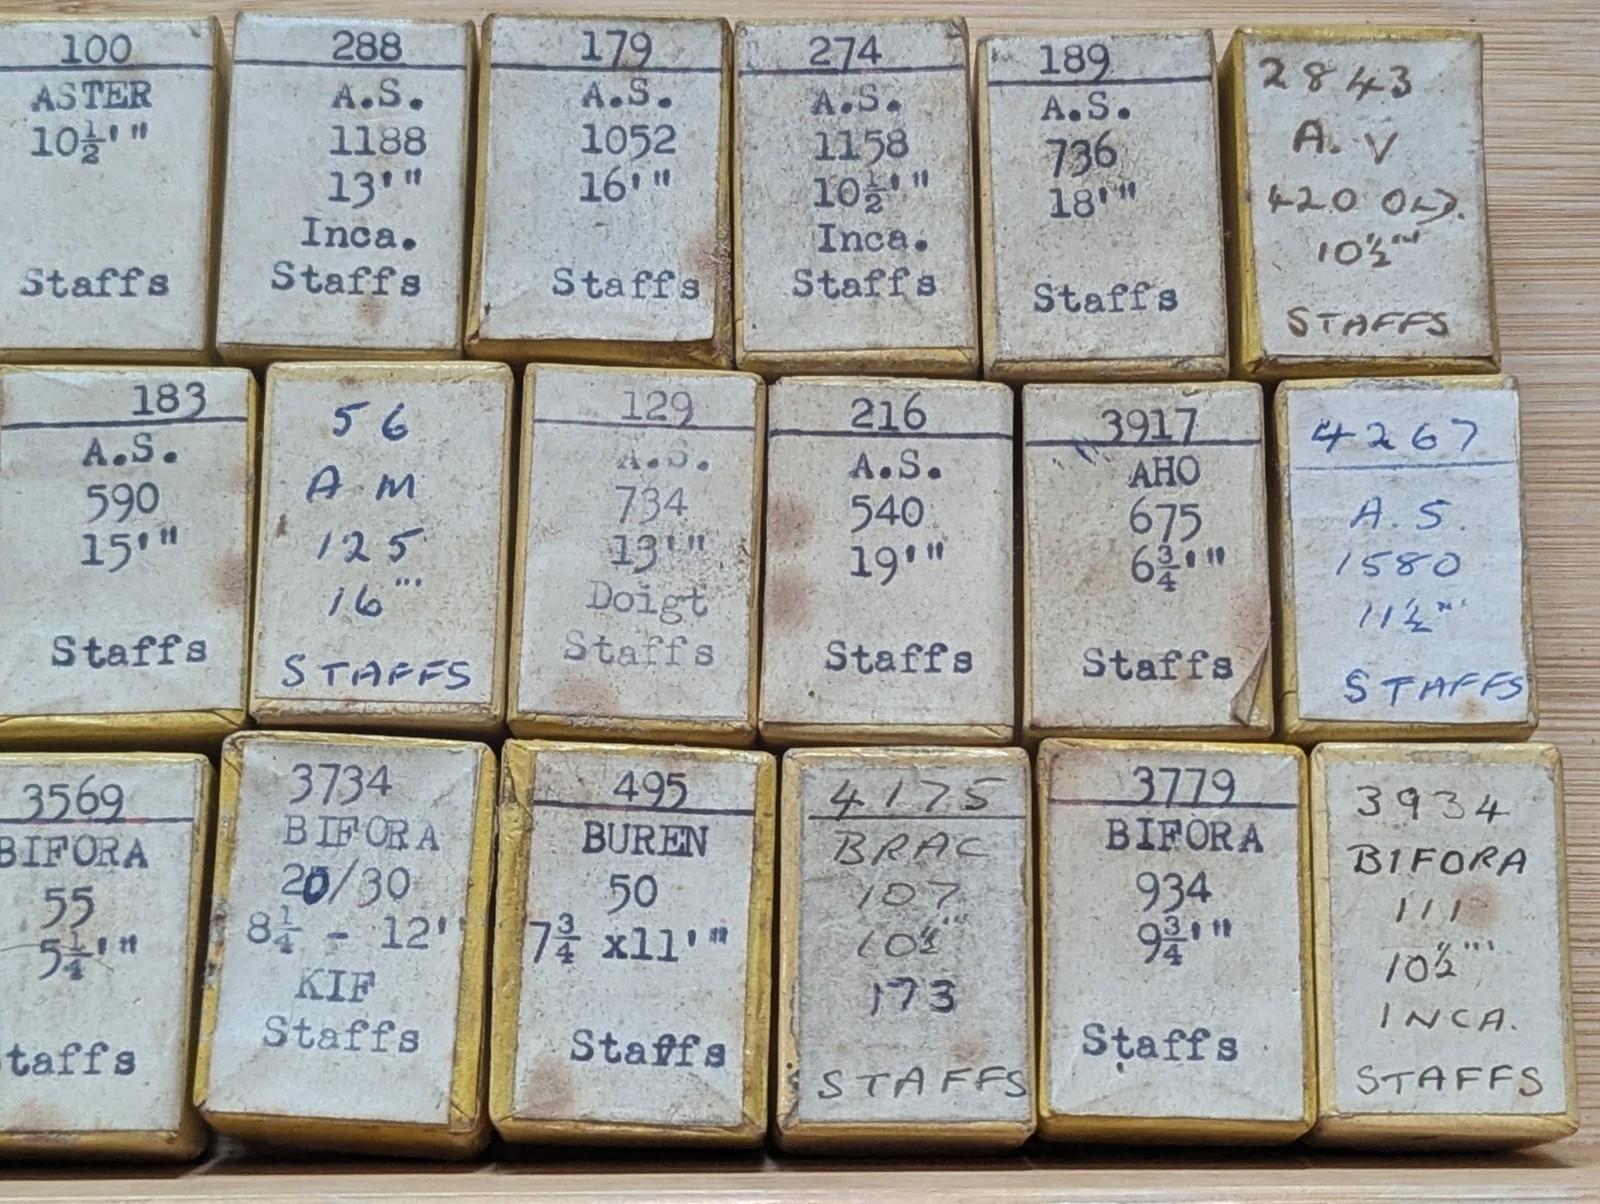 100
ASTER
10½'"
Staffs
288
A.S.
1188
13'"
Inca.
Staffs
179
A.S.
1052
16'"
Staffs
274
A.S.
1158
10½'"
Inca.
Staffs
189
A.S.
736
18'"
Staffs
2843
A.V
420
10½'"
STAFFS
183
A.S.
590
15'"
Staffs
56
A M
125
16'"
STAFFS
129
A.S.
734
13'"
Doigt
Staffs
216
A.S.
540
19'"
Staffs
3917
AHO
675
6¾'"
Staffs
4267
A.S.
1580
11½'"
STAFFS
3569
BIFORA
55
5¼'"
taffs
3734
BIFORA
20/30
8¼ - 12'
KIF
Staffs
495
BUREN
50
7¾ x11'"
Staffs
4175
BRAC
107
10½'"
173
STAFFS
3779
BIFORA
934
9¾'"
Staffs
3934
BIFORA
111
10½'"
INCA.
STAFFS